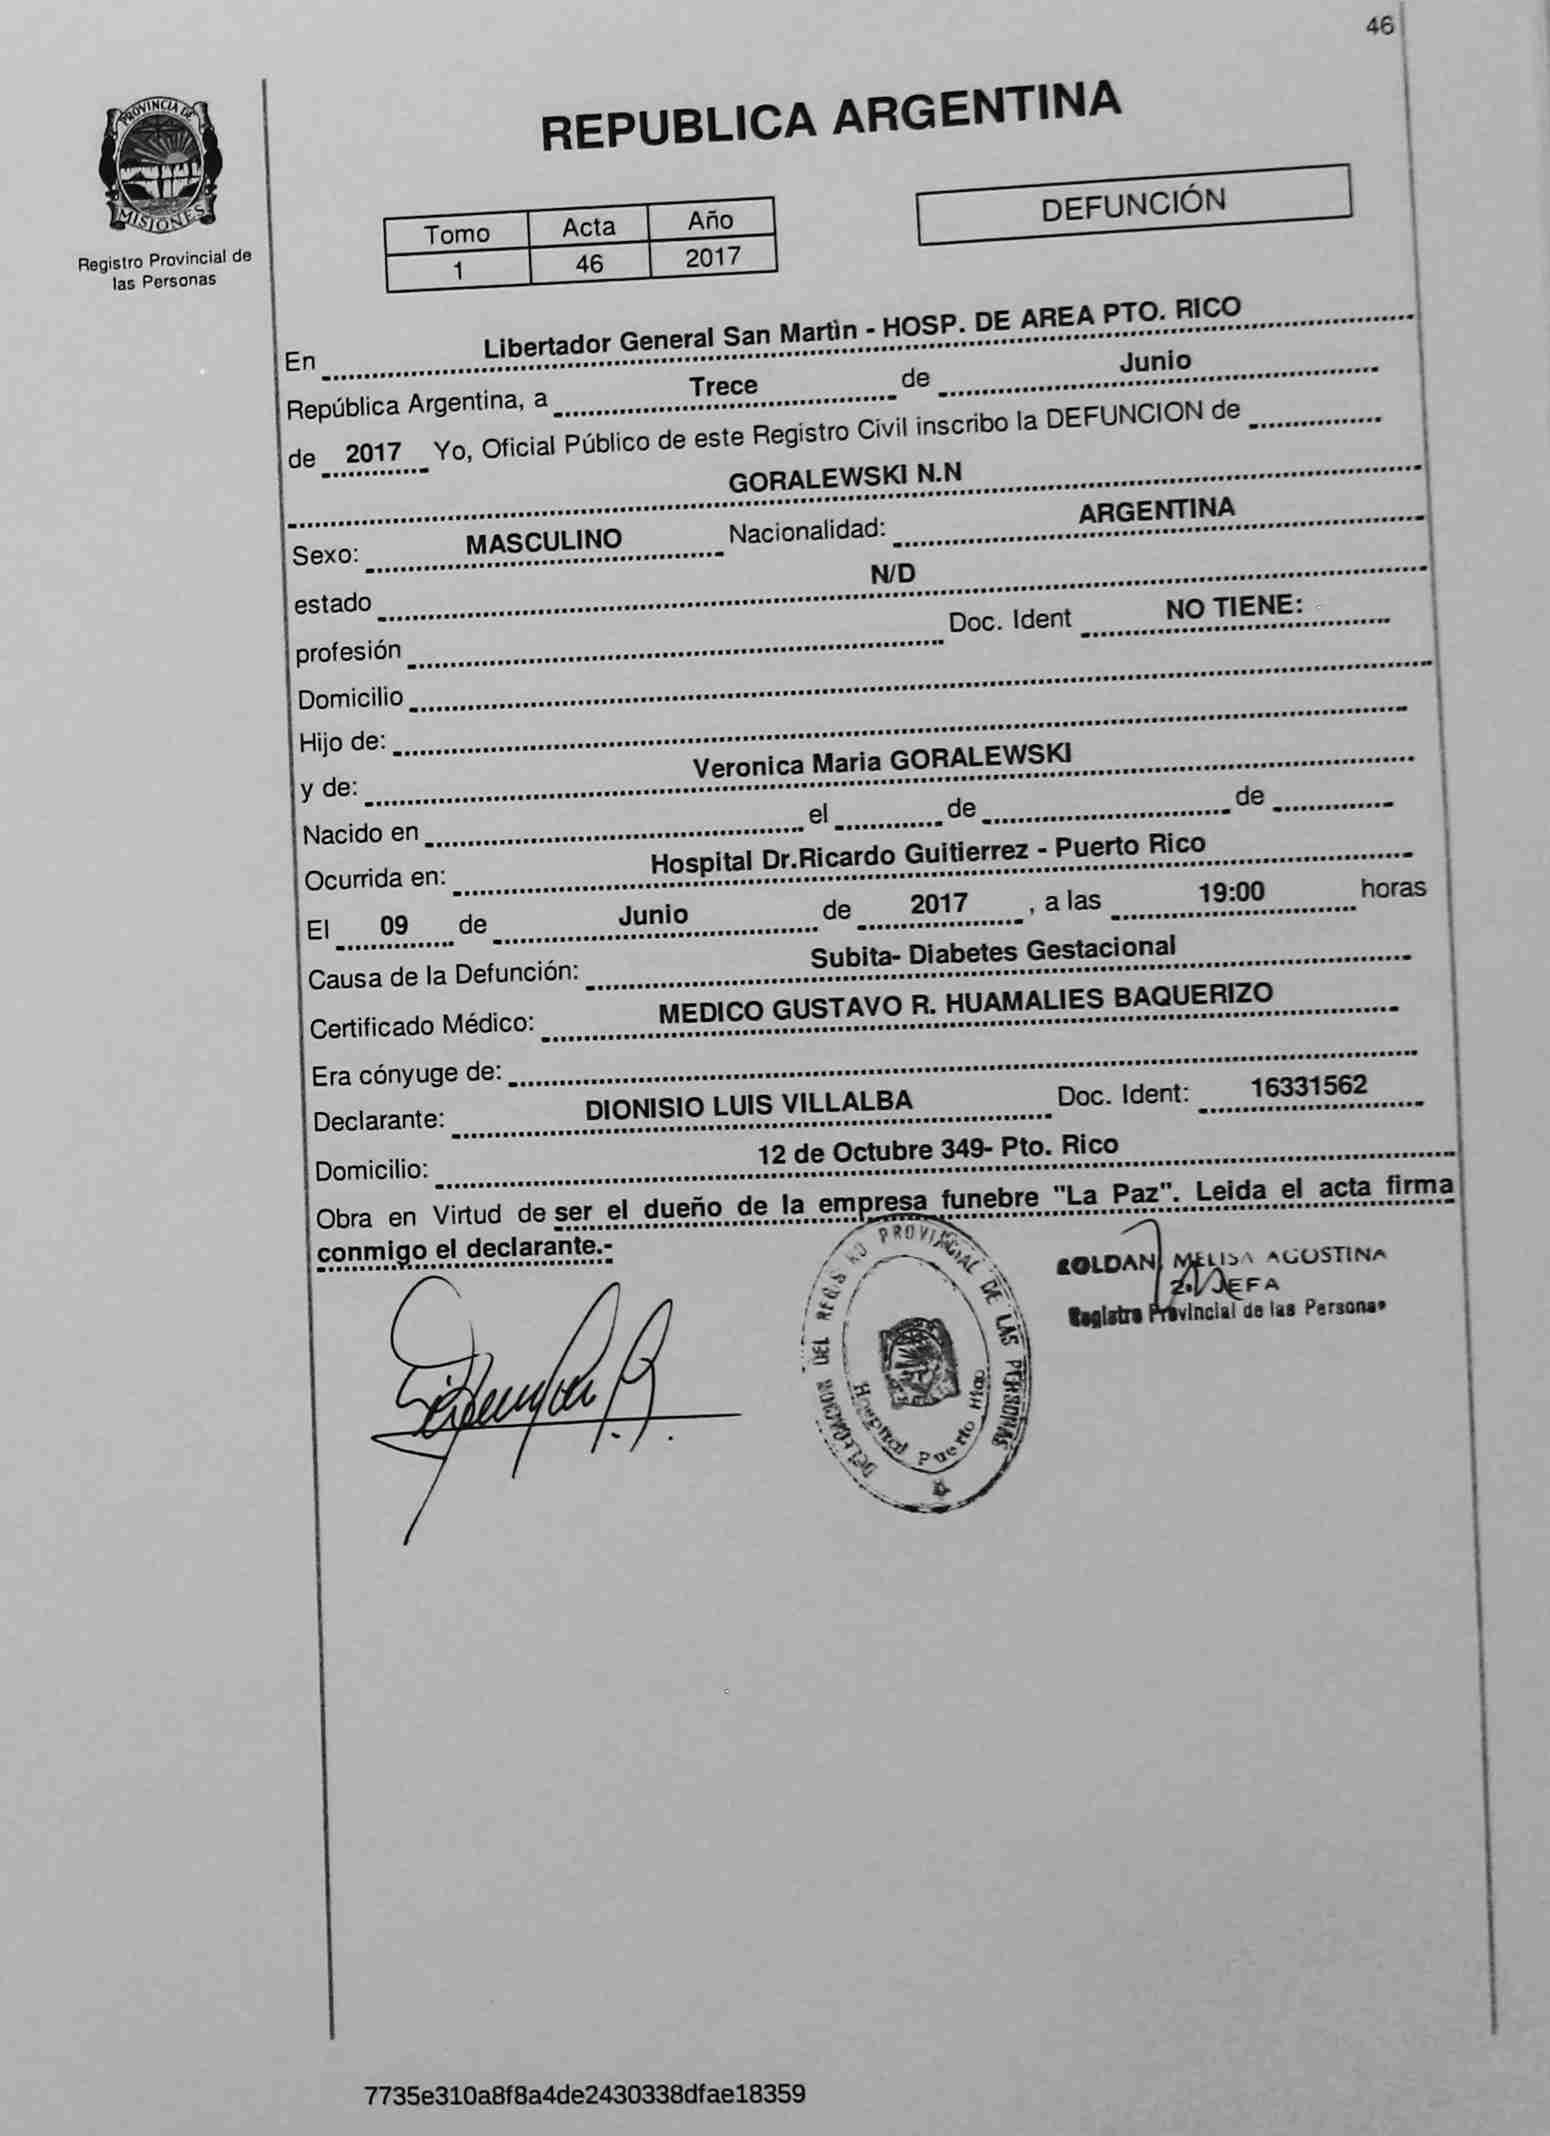 46
PROVINCIA DE
MISIONES
Registro Provincial de
las Personas
REPUBLICA ARGENTINA
Tomo Acta Año
1 46 2017
DEFUNCIÓN
En Libertador General San Martìn - HOSP. DE AREA PTO. RICO
República Argentina, a Trece de Junio
de 2017 Yo, Oficial Público de este Registro Civil inscribo la DEFUNCION de
GORALEWSKI N.N
Sexo: MASCULINO Nacionalidad: ARGENTINA
estado N/D
profesión Doc. Ident NO TIENE:
Domicilio
Hijo de:
y de: Veronica Maria GORALEWSKI
Nacido en el de de
Ocurrida en: Hospital Dr.Ricardo Guitierrez - Puerto Rico
El 09 de Junio de 2017 , a las 19:00 horas
Causa de la Defunción: Subita- Diabetes Gestacional
Certificado Médico: MEDICO GUSTAVO R. HUAMALIES BAQUERIZO
Era cónyuge de:
Declarante: DIONISIO LUIS VILLALBA Doc. Ident: 16331562
Domicilio: 12 de Octubre 349- Pto. Rico
Obra en Virtud de ser el dueño de la empresa funebre "La Paz". Leida el acta firma
conmigo el declarante.-
DELEGACION DEL REGISTRO PROVINCIAL DE LAS PERSONAS
Hospital Puerto Rico
ROLDAN MELISA AGOSTINA
2. JEFA
Registro Provincial de las Personas
7735e310a8f8a4de2430338dfae18359